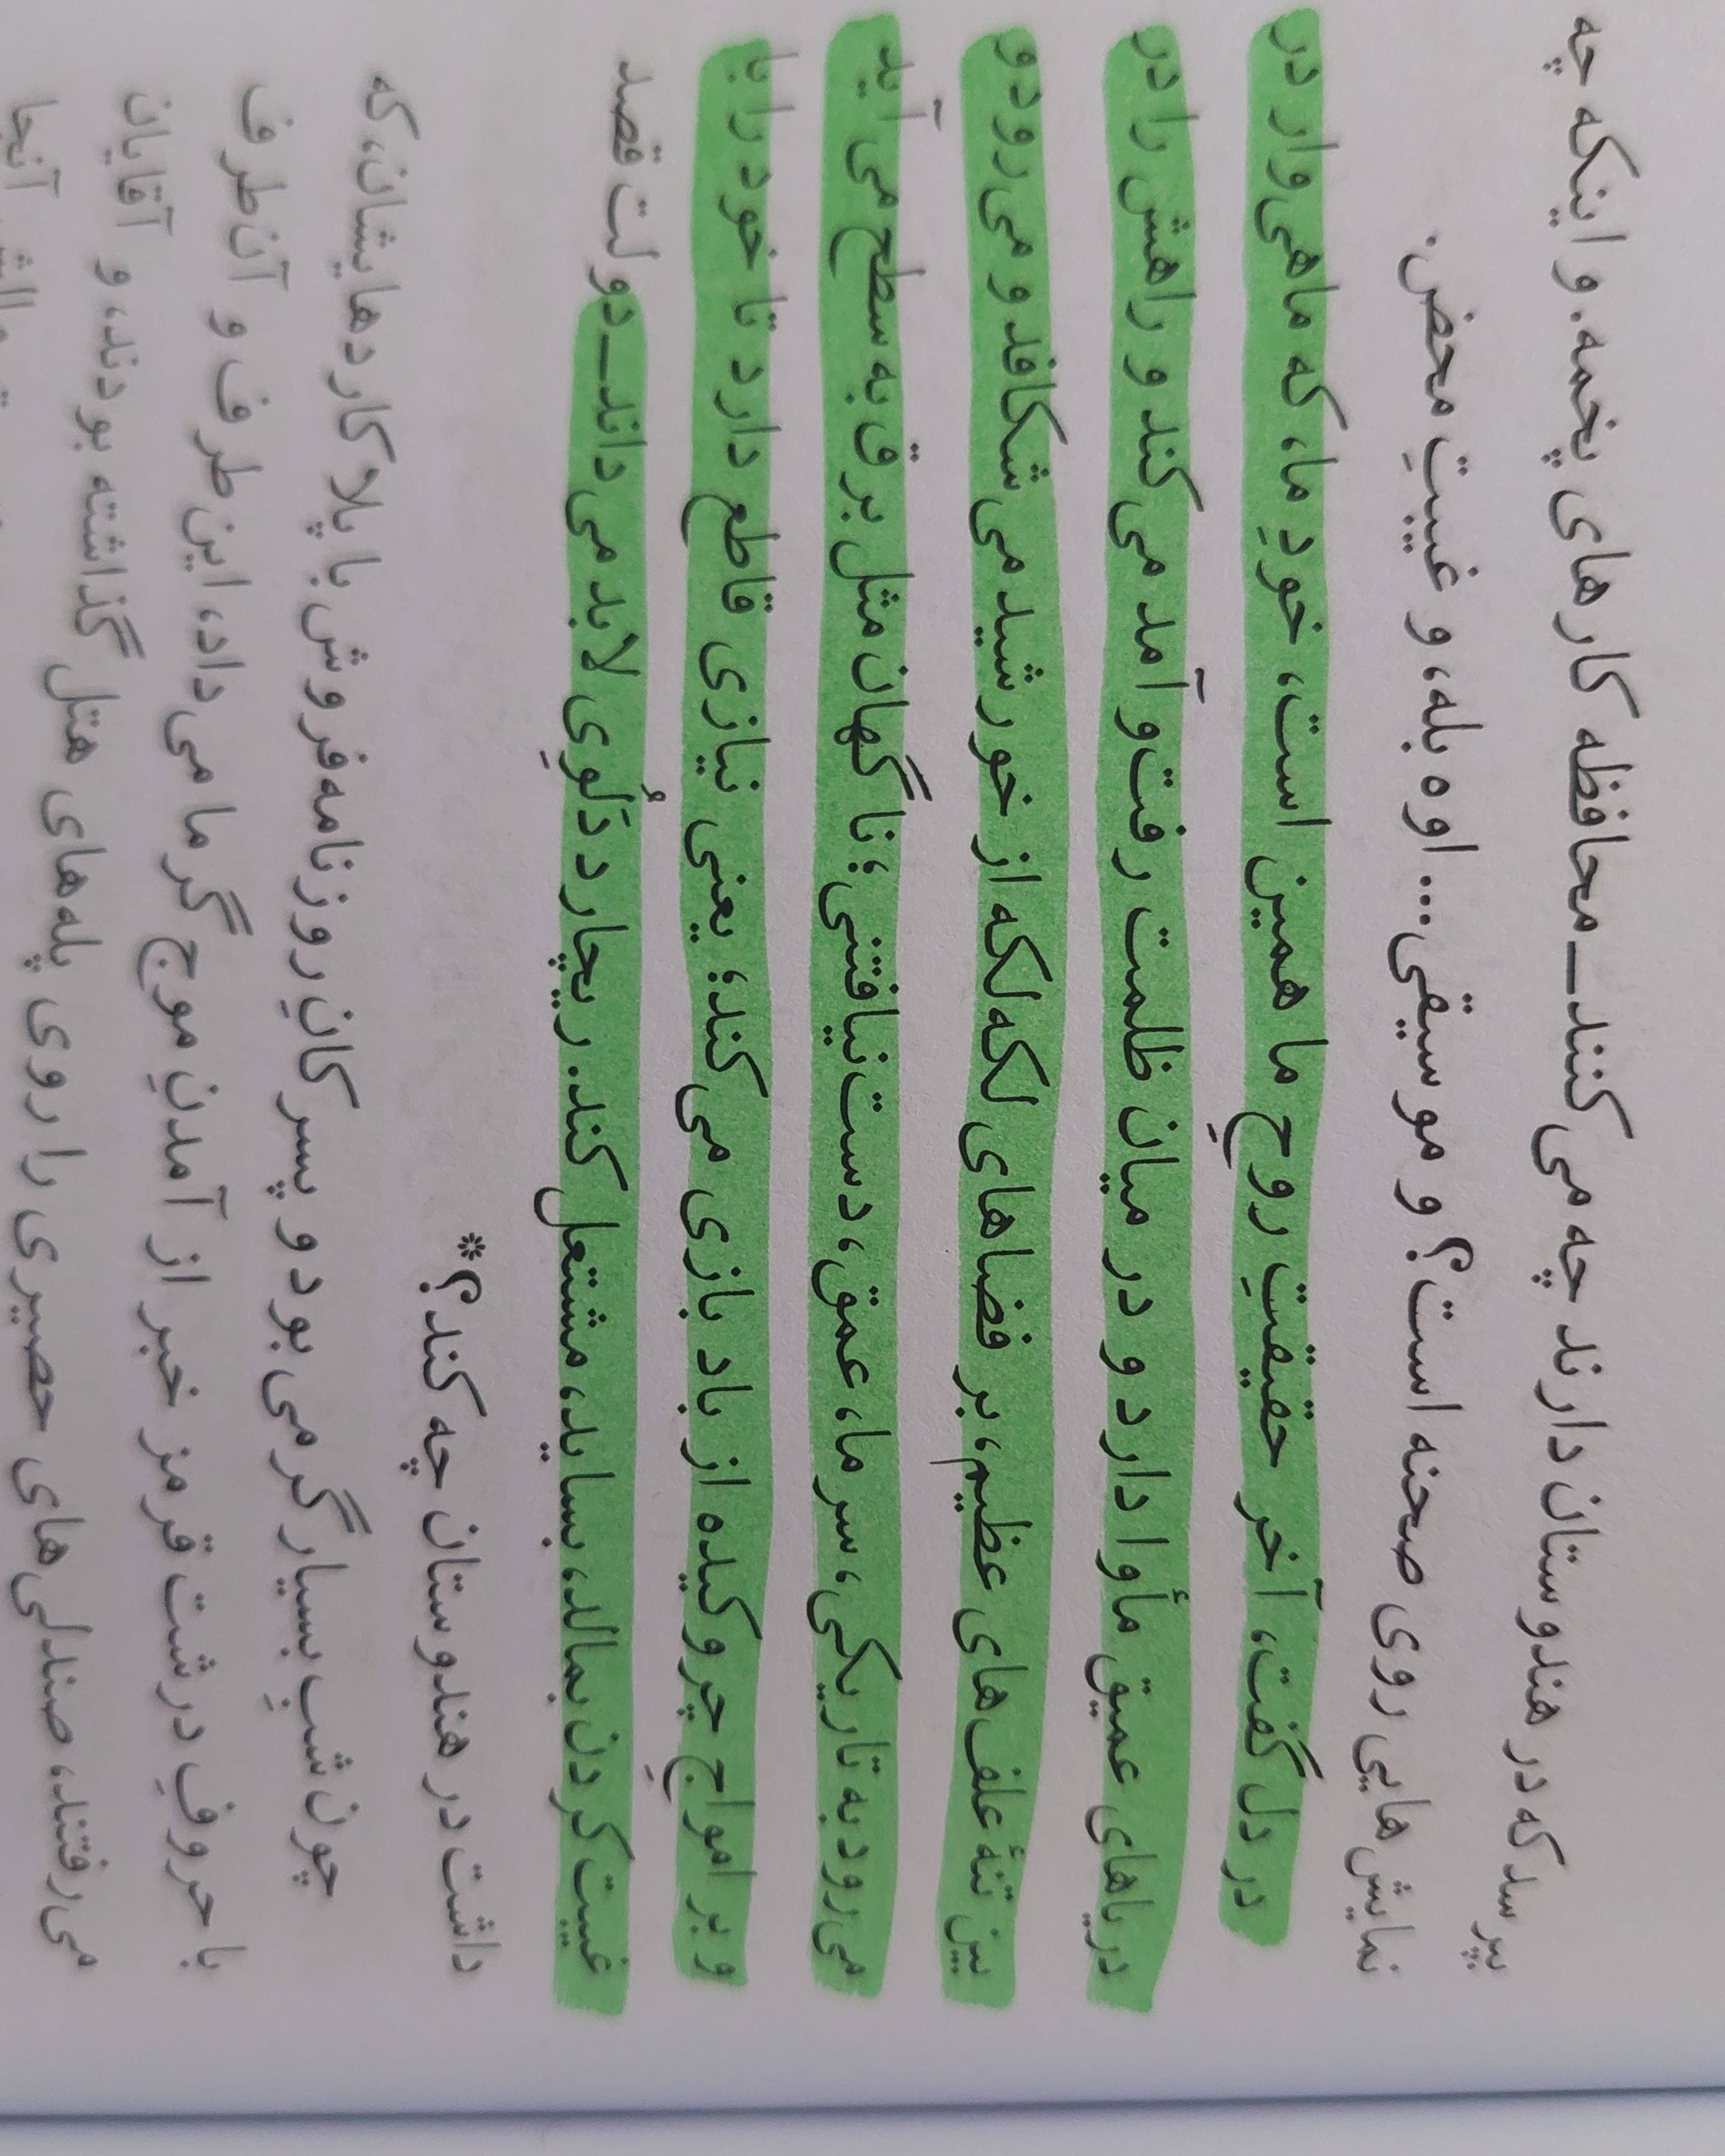 بپرسد که در هندوستان دارند چه می‌کنند ـ محافظه کارهای پخمه. و اینکه چه
نمایش‌هایی روی صحنه است؟ و موسیقی... اوه بله، و غیبتِ محض.
در دل گفت، آخر حقیقتِ روحِ ما همین است، خودِ ما، که ماهی‌وار در
دریاهای عمیق مأوا دارد و در میان ظلمت رفت‌و آمد می‌کند و راهش را در
بین تنهٔ علف‌های عظیم، بر فضاهای لکه لکه از خورشید می‌شکافد و می‌رود و
می‌رود به تاریکی، سرما، عمق، دست‌نیافتنی؛ ناگهان مثل برق به سطح می‌آید
و بر امواجِ چروکیده از باد بازی می‌کند؛ یعنی نیازی قاطع دارد تا خود را با
غیبت کردن بمالد، بساید، مشتعل کند. ریچارد دَلُوِی لابد می‌داند ـ دولت قصد
داشت در هندوستان چه کند؟*
چون شبِ بسیار گرمی بود و پسرکانِ روزنامه‌فروش با پلاکاردهایشان، که
با حروفِ درشت قرمز خبر از آمدنِ موج گرما می‌داد، این‌طرف و آن‌طرف
می‌رفتند، صندلی‌های حصیری را روی پله‌های هتل گذاشته بودند، و آقایان
آنجا